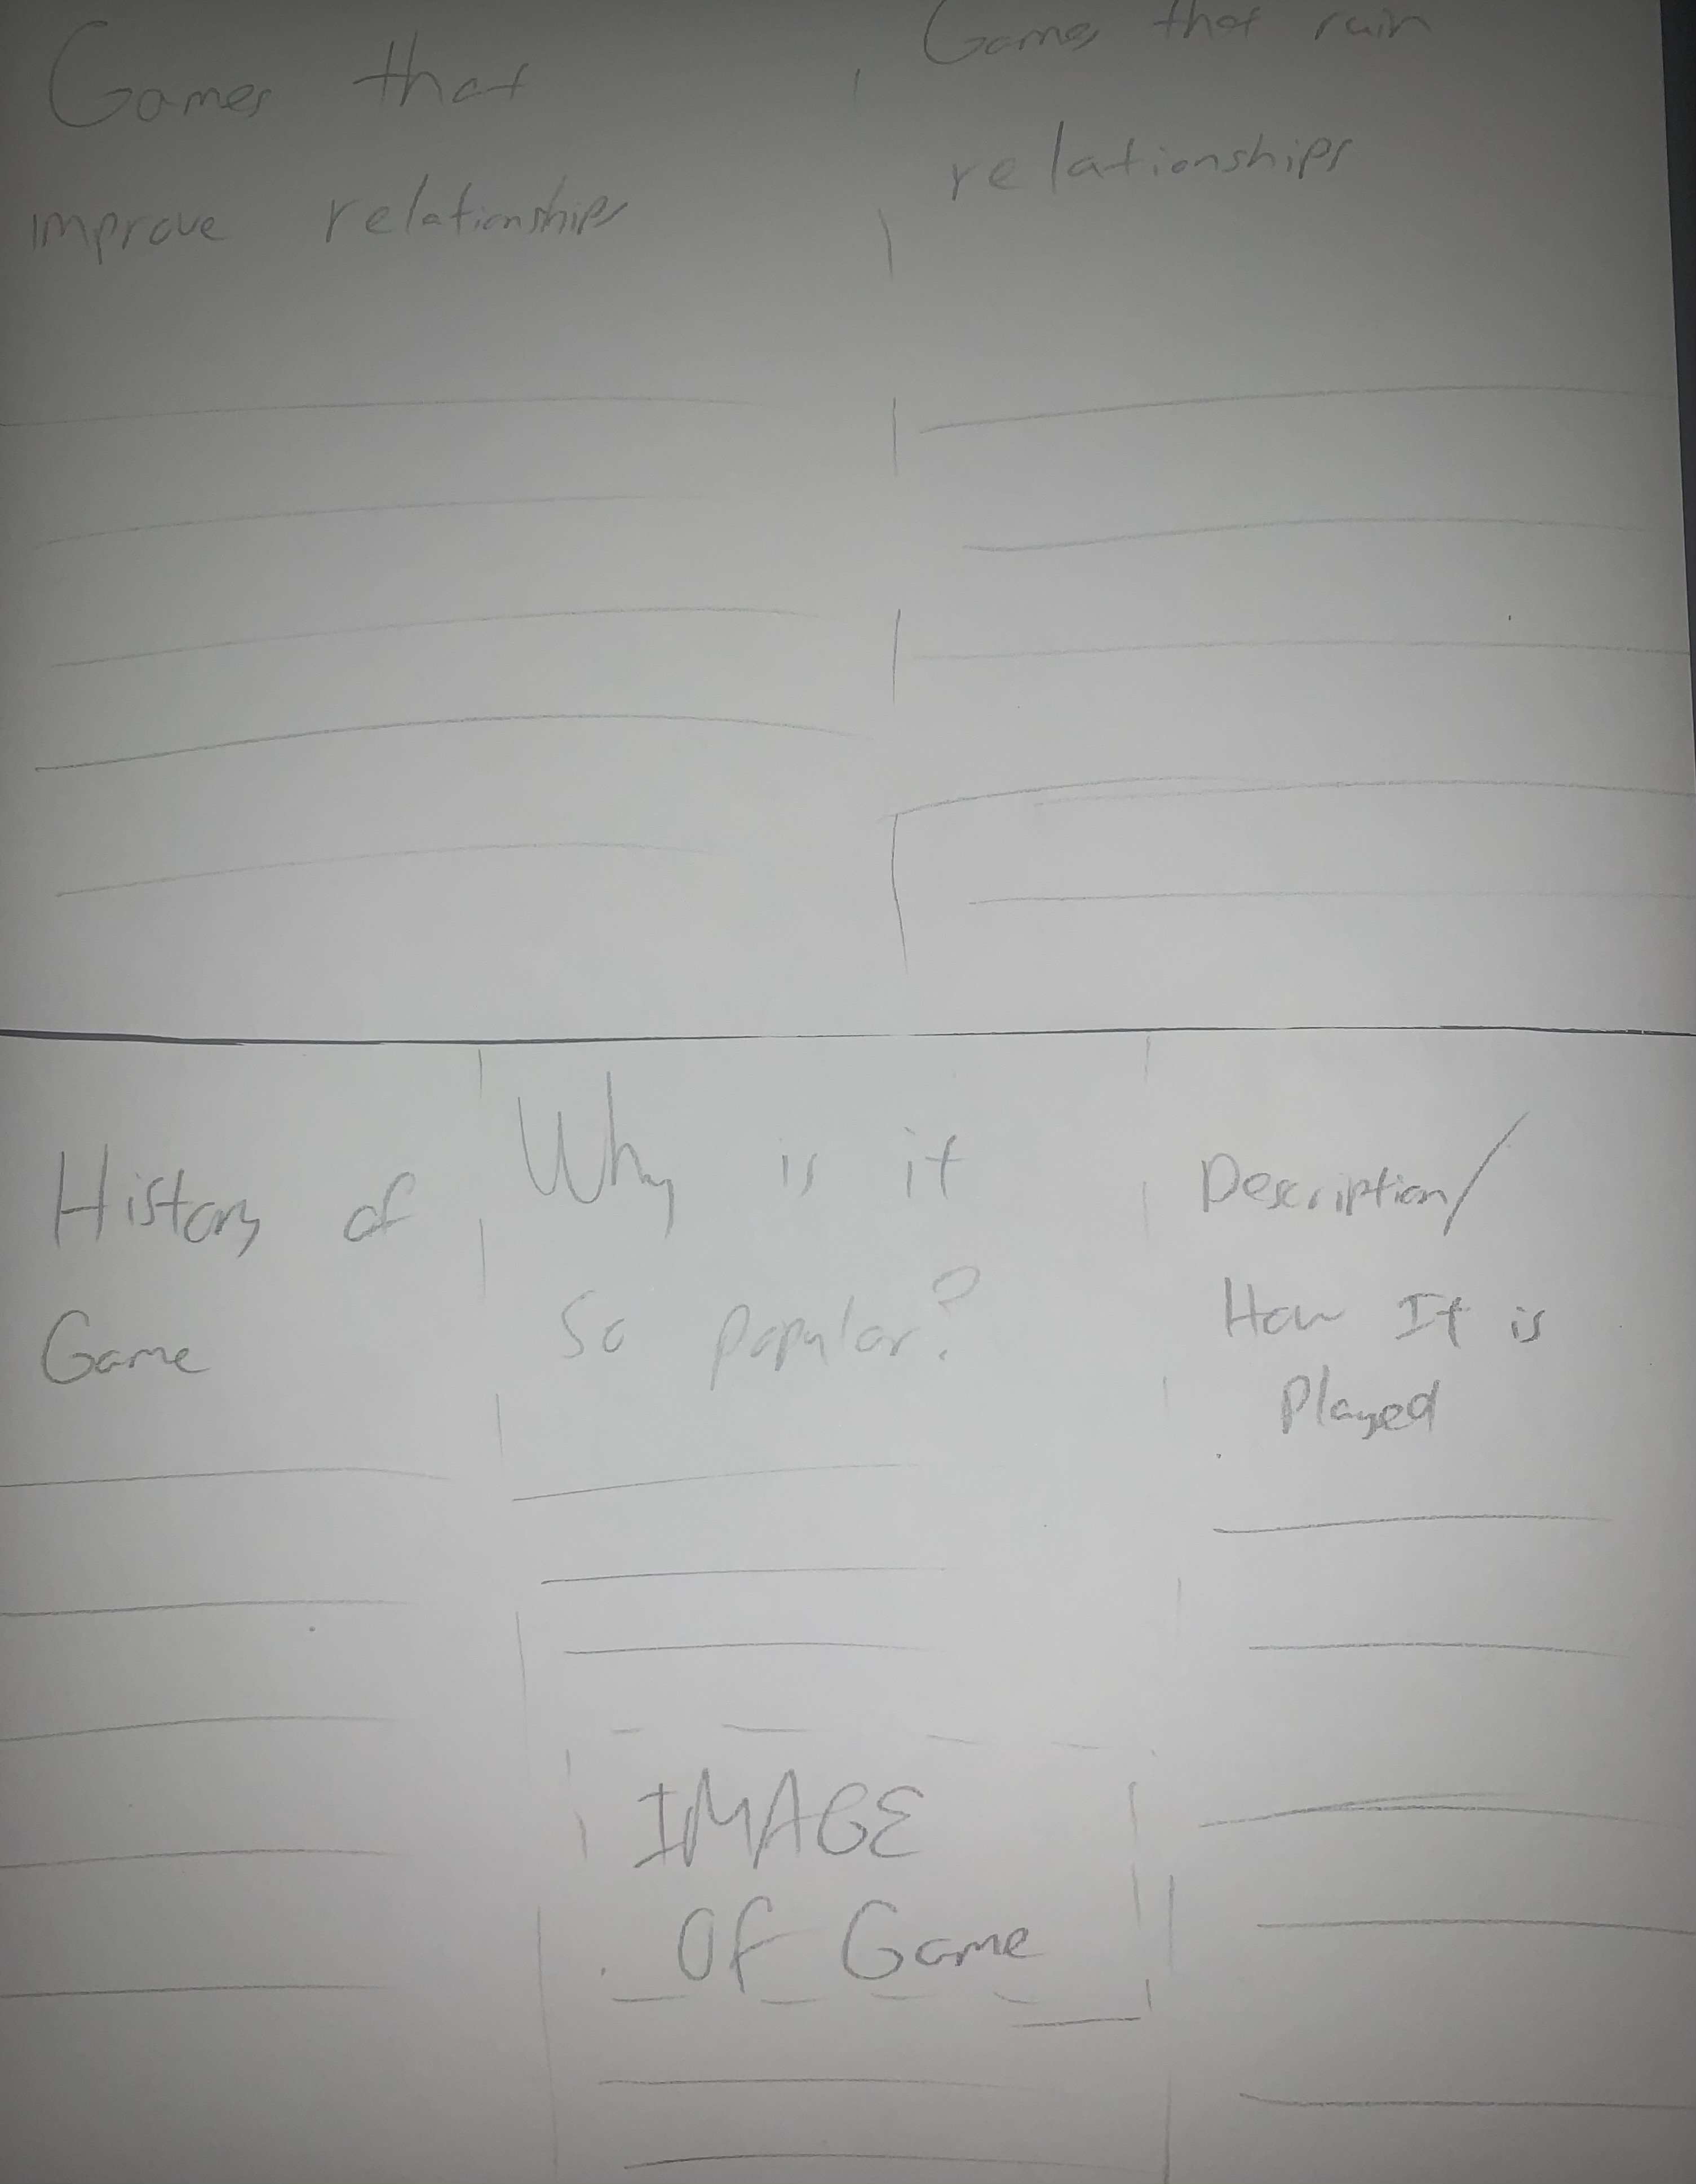 Games that
improve relationships
Games that ruin
relationships
History of
Game
Why is it
so popular?
Description/
How It is
Played
IMAGE
Of Game